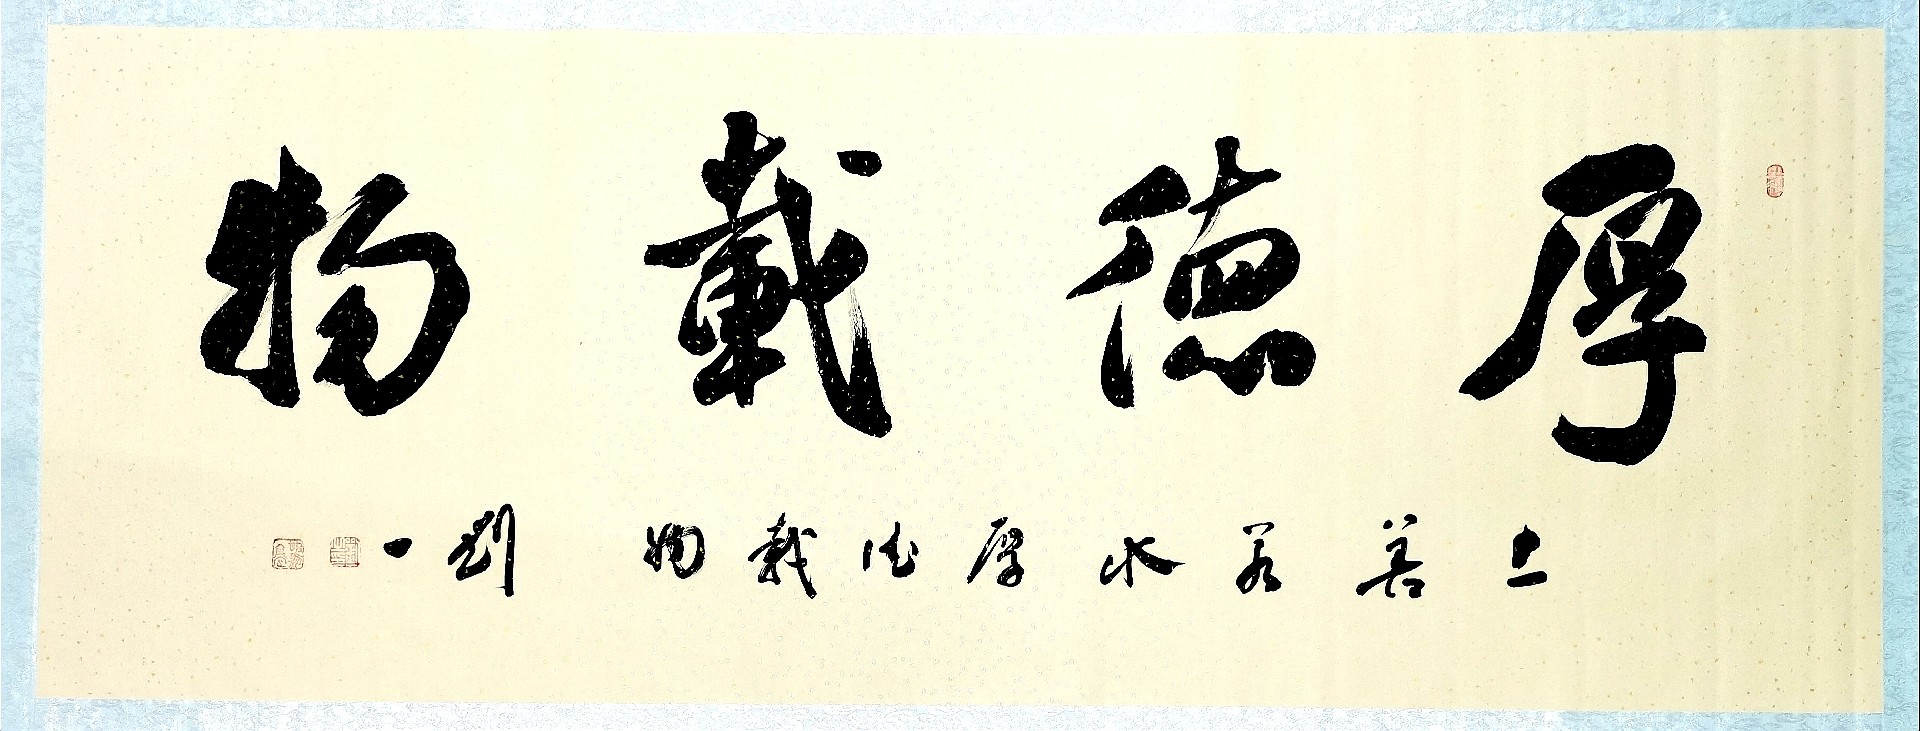 厚德載物
上善若水厚德載物 劉一